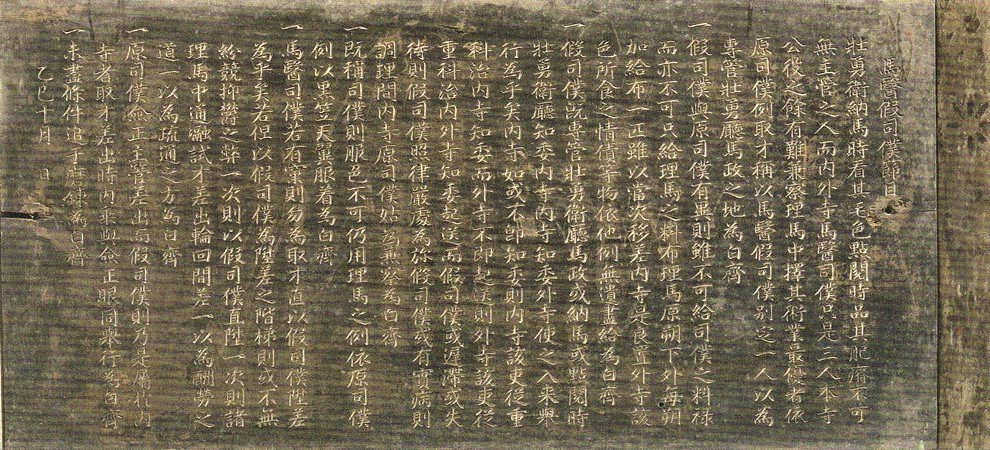 馬醫假司僕節目
壯勇衛納馬時看其毛色點閱時品其肥瘠不可
無主管之人而內外寺馬醫司僕只是三人本寺
公役之餘有難兼察理馬中擇其術業最優者依
原司僕例取才稱以馬醫假司僕別定一人以為
專管壯勇廳馬政之地為白齊
一假司僕與原司僕有異則雖不可給司僕之料祿
而亦不可只給理馬之料布理馬原朔下外每朔
加給布一匹雖以當次移差內寺是良置外寺該
色所食之情債等物依他例無遺盡給為白齊
一假司僕旣專管壯勇衛廳馬政或納馬或點閱時
壯勇衛廳知委內寺內寺知委外寺使之入來舉
行為乎矣內寺如或不卽知委則內寺該吏從重
科治內寺知委而外寺不卽起送則外寺該吏從
重科治內外寺知委起送而假司僕或遲滯或失
待則假司僕照律嚴處為旀假司僕或有實病則
調理間內寺原司僕姑為兼察為白齊
一旣稱司僕則服色不可仍用理馬之例依原司僕
例以黑笠天翼服着為白齊
一馬醫司僕若有窠則勿為取才直以假司僕陞差
為乎矣若但以假司僕為陞差之階梯則或不無
紛競抑鬱之弊一次則以假司僕直陞一次則諸
理馬中通融試才差出輪回間差一以為酬勞之
道一以為疏通之方為白齊
一原司僕僉正主管差出而假司僕則乃是屬於內
寺者取才差出時內乘與僉正眼同舉行為白齊
一未盡條件追于磨鍊為白齊
乙巳十月 日